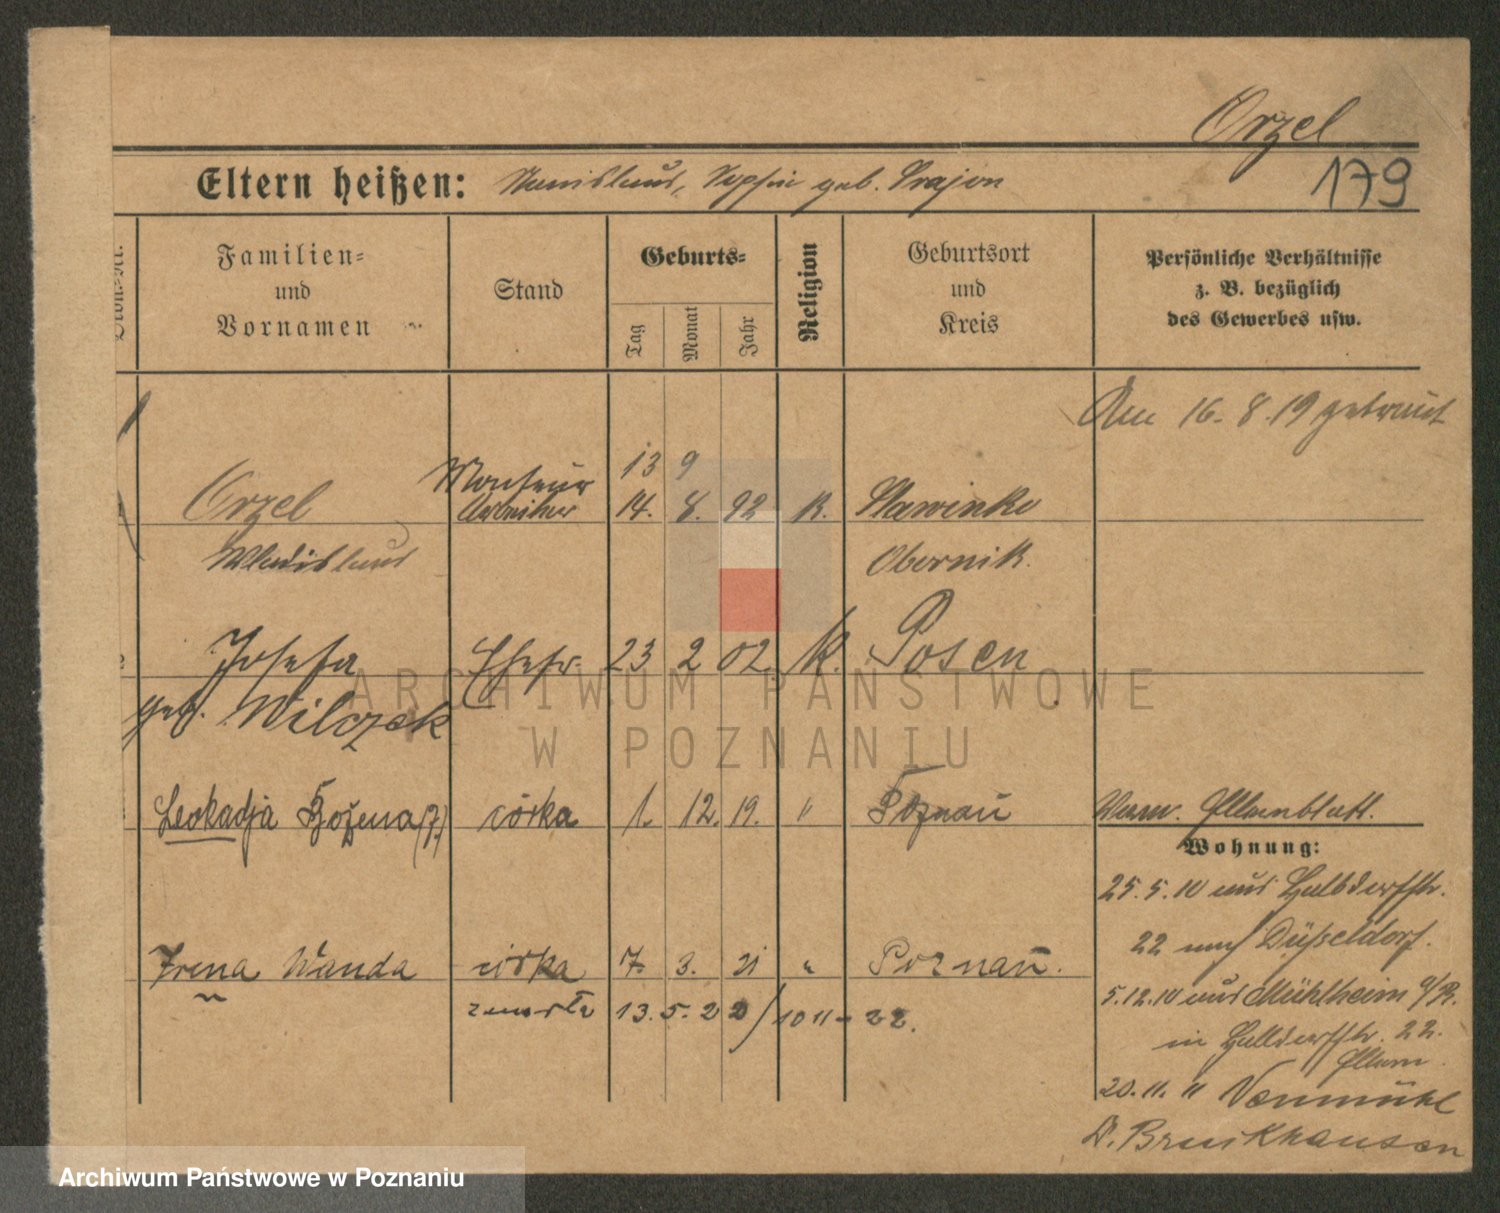 Orzel
179
Eltern heißen: Stanislaus, Sophie geb. Srajon
Familien=
und
Vornamen
Stand
Geburts=
Tag
Monat
Jahr
Religion
Geburtsort
und
Kreis
Persönliche Verhältnisse
z. B. bezüglich
des Gewerbes usw.
Am 16. 8. 19 getraut
13 9
Monteur
Orzel Arbeiter 14. 8. 92 K. Slawinko
Wladislaus Obornik.
Josefa Ehefr. 23 2 02. K. Posen
geb. Wilczek
Leokadja Bożena (7.) córka 1. 12. 19. " Poznań
Verw. Elternblatt.
Wohnung:
25. 5. 10 aus Halbdorfstr.
22 nach Düsseldorf.
Irena Wanda córka 7. 3. 21 " Poznań.
5.12.10 aus Mühlheim a/R.
zmarła 13. 5. 22 / 10 11 - 22.
in Halbdorfstr. 22.
Eltern
20. 11. 11
ARCHIWUM PAŃSTWOWE
W POZNANIU
Archiwum Państwowe w Poznaniu